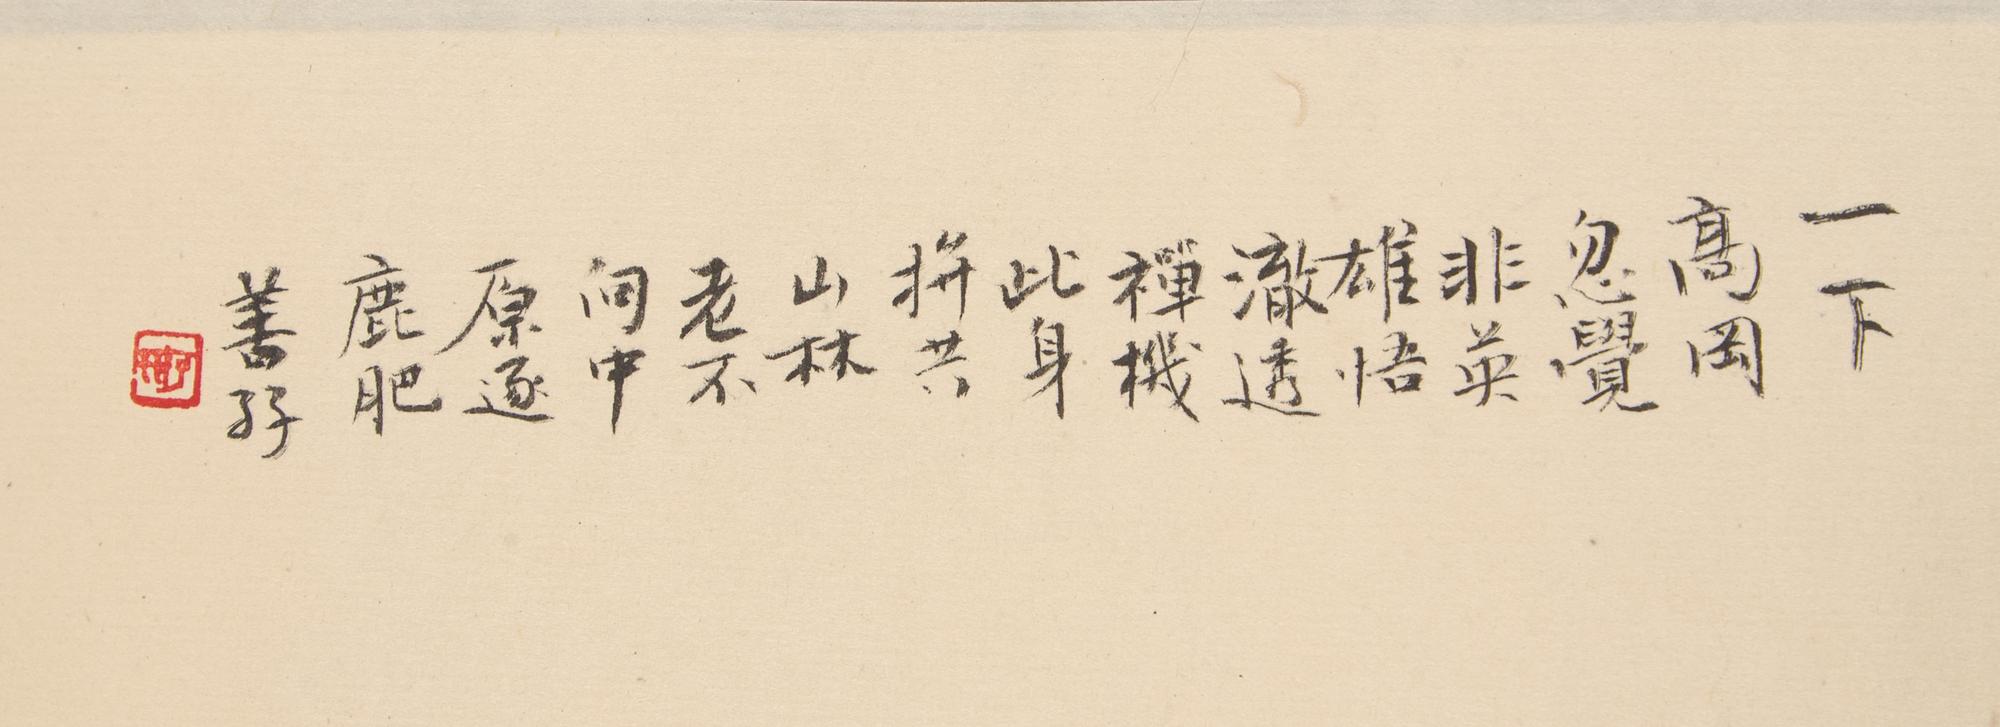 一下
高岡
忽覺
非英
雄悟
澈透
禪機
此身
拚共
山林
老不
向中
原逐
鹿肥
善孖